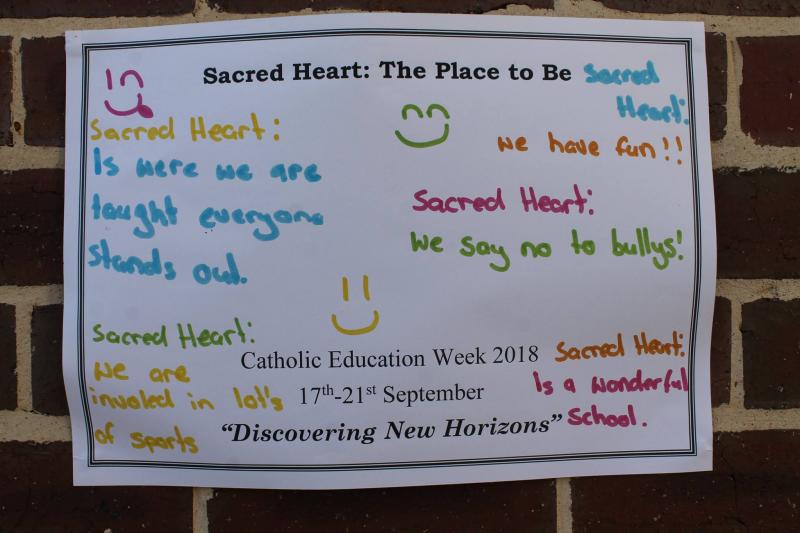 Sacred Heart: The Place to Be
Sacred
Heart:
we have fun!!
Sacred Heart:
Is were we are
taught everyone
stands out.
Sacred Heart:
we say no to bullys!
Sacred Heart:
we are
involed in lot's
of sports
Catholic Education Week 2018
17th-21st September
"Discovering New Horizons"
Sacred Heart:
Is a wonderful
School.